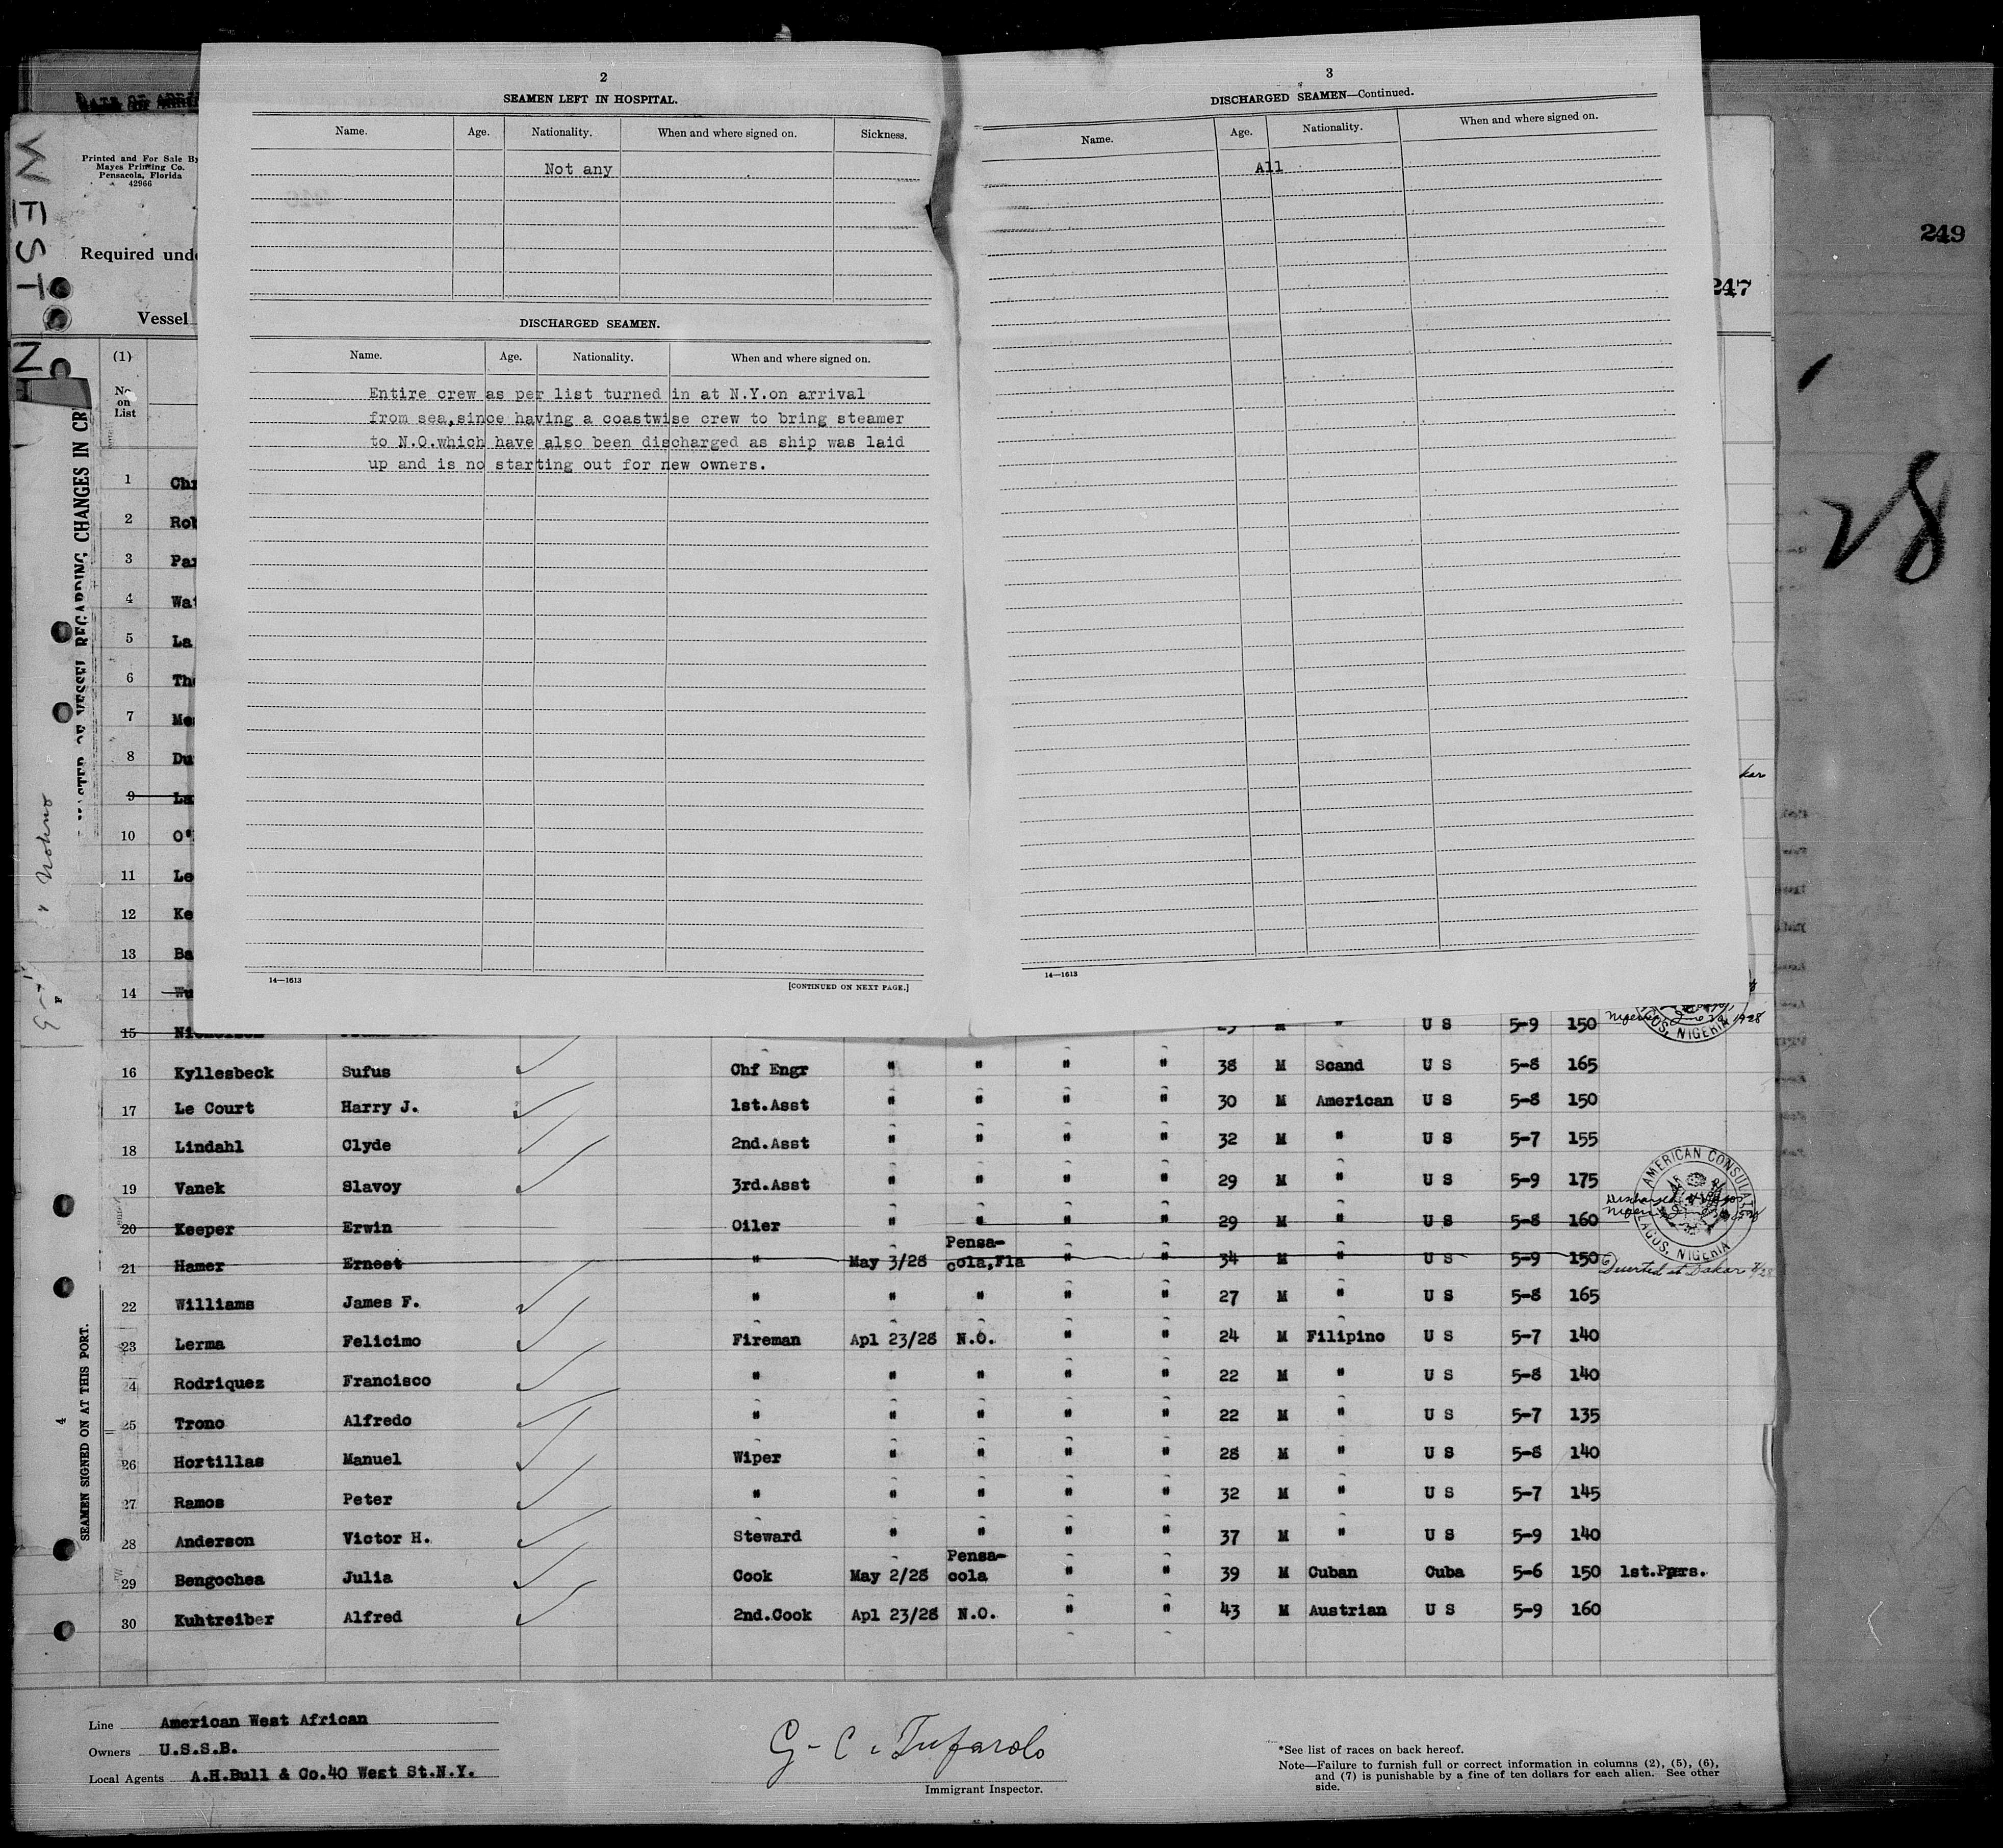 2
SEAMEN LEFT IN HOSPITAL.
Name. Age. Nationality. When and where signed on. Sickness.
Not any
DISCHARGED SEAMEN.
Name. Age. Nationality. When and where signed on.
Entire crew as per list turned in at N.Y.on arrival
from sea,since having a coastwise crew to bring steamer
to N.O.which have also been discharged as ship was laid
up and is no starting out for new owners.
14—1613
[CONTINUED ON NEXT PAGE.]
3
DISCHARGED SEAMEN—Continued.
Name. Age. Nationality. When and where signed on.
All
14—1613
249
247
28
WEST
Printed and For Sale By
Mayes Printing Co.
Pensacola, Florida
42966
Required und
Vessel
(1)
No
on
List
REGARDING CHANGES IN
SEAMEN SIGNED ON AT THIS PORT.
4
1 Chr
2 Rob
3 Par
4 Wat
5 La
6 The
7 Mea
8 Du
9 La
10 O'
11 Le
12 Ke
13 Ba
14 Wu
15 " U S 5-9 150 Nigeria 1928
16 Kyllesbeck Sufus Chf Engr " " " " 38 M Scand U S 5-8 165
17 Le Court Harry J. 1st.Asst " " " " 30 M American U S 5-8 150
18 Lindahl Clyde 2nd.Asst " " " " 32 M " U S 5-7 155
19 Vanek Slavoy 3rd.Asst " " " " 29 M " U S 5-9 175
20 Keeper Erwin Oiler " " " " 29 M " U S 5-8 160 Discharged at Lagos
AMERICAN CONSULATE LAGOS, NIGERIA
21 Hamer Ernest " May 3/28 Pensa-cola,Fla " " 34 M " U S 5-9 150 Deserted at Dakar
22 Williams James F. " " " " " 27 M " U S 5-8 165
23 Lerma Felicimo Fireman Apl 23/28 N.O. " " 24 M Filipino U S 5-7 140
24 Rodriquez Francisco " " " " " 22 M " U S 5-8 140
25 Trono Alfredo " " " " " 22 M " U S 5-7 135
26 Hortillas Manuel Wiper " " " " 28 M " U S 5-8 140
27 Ramos Peter " " " " " 32 M " U S 5-7 145
28 Anderson Victor H. Steward " " " " 37 M " U S 5-9 140
29 Bengochea Julia Cook May 2/28 Pensa-cola " " 39 M Cuban Cuba 5-6 150 1st.Pprs.
30 Kuhtreiber Alfred 2nd.Cook Apl 23/28 N.O. " " 43 M Austrian U S 5-9 160
Line American West African
Owners U.S.S.B.
Local Agents A.H.Bull & Co.40 West St.N.Y.
G. C. Tufarolo
Immigrant Inspector.
*See list of races on back hereof.
Note—Failure to furnish full or correct information in columns (2), (5), (6),
and (7) is punishable by a fine of ten dollars for each alien. See other
side.